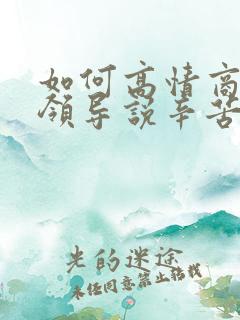 如何高情商
领导说辛苦
光的迷途
未经同意禁止转载